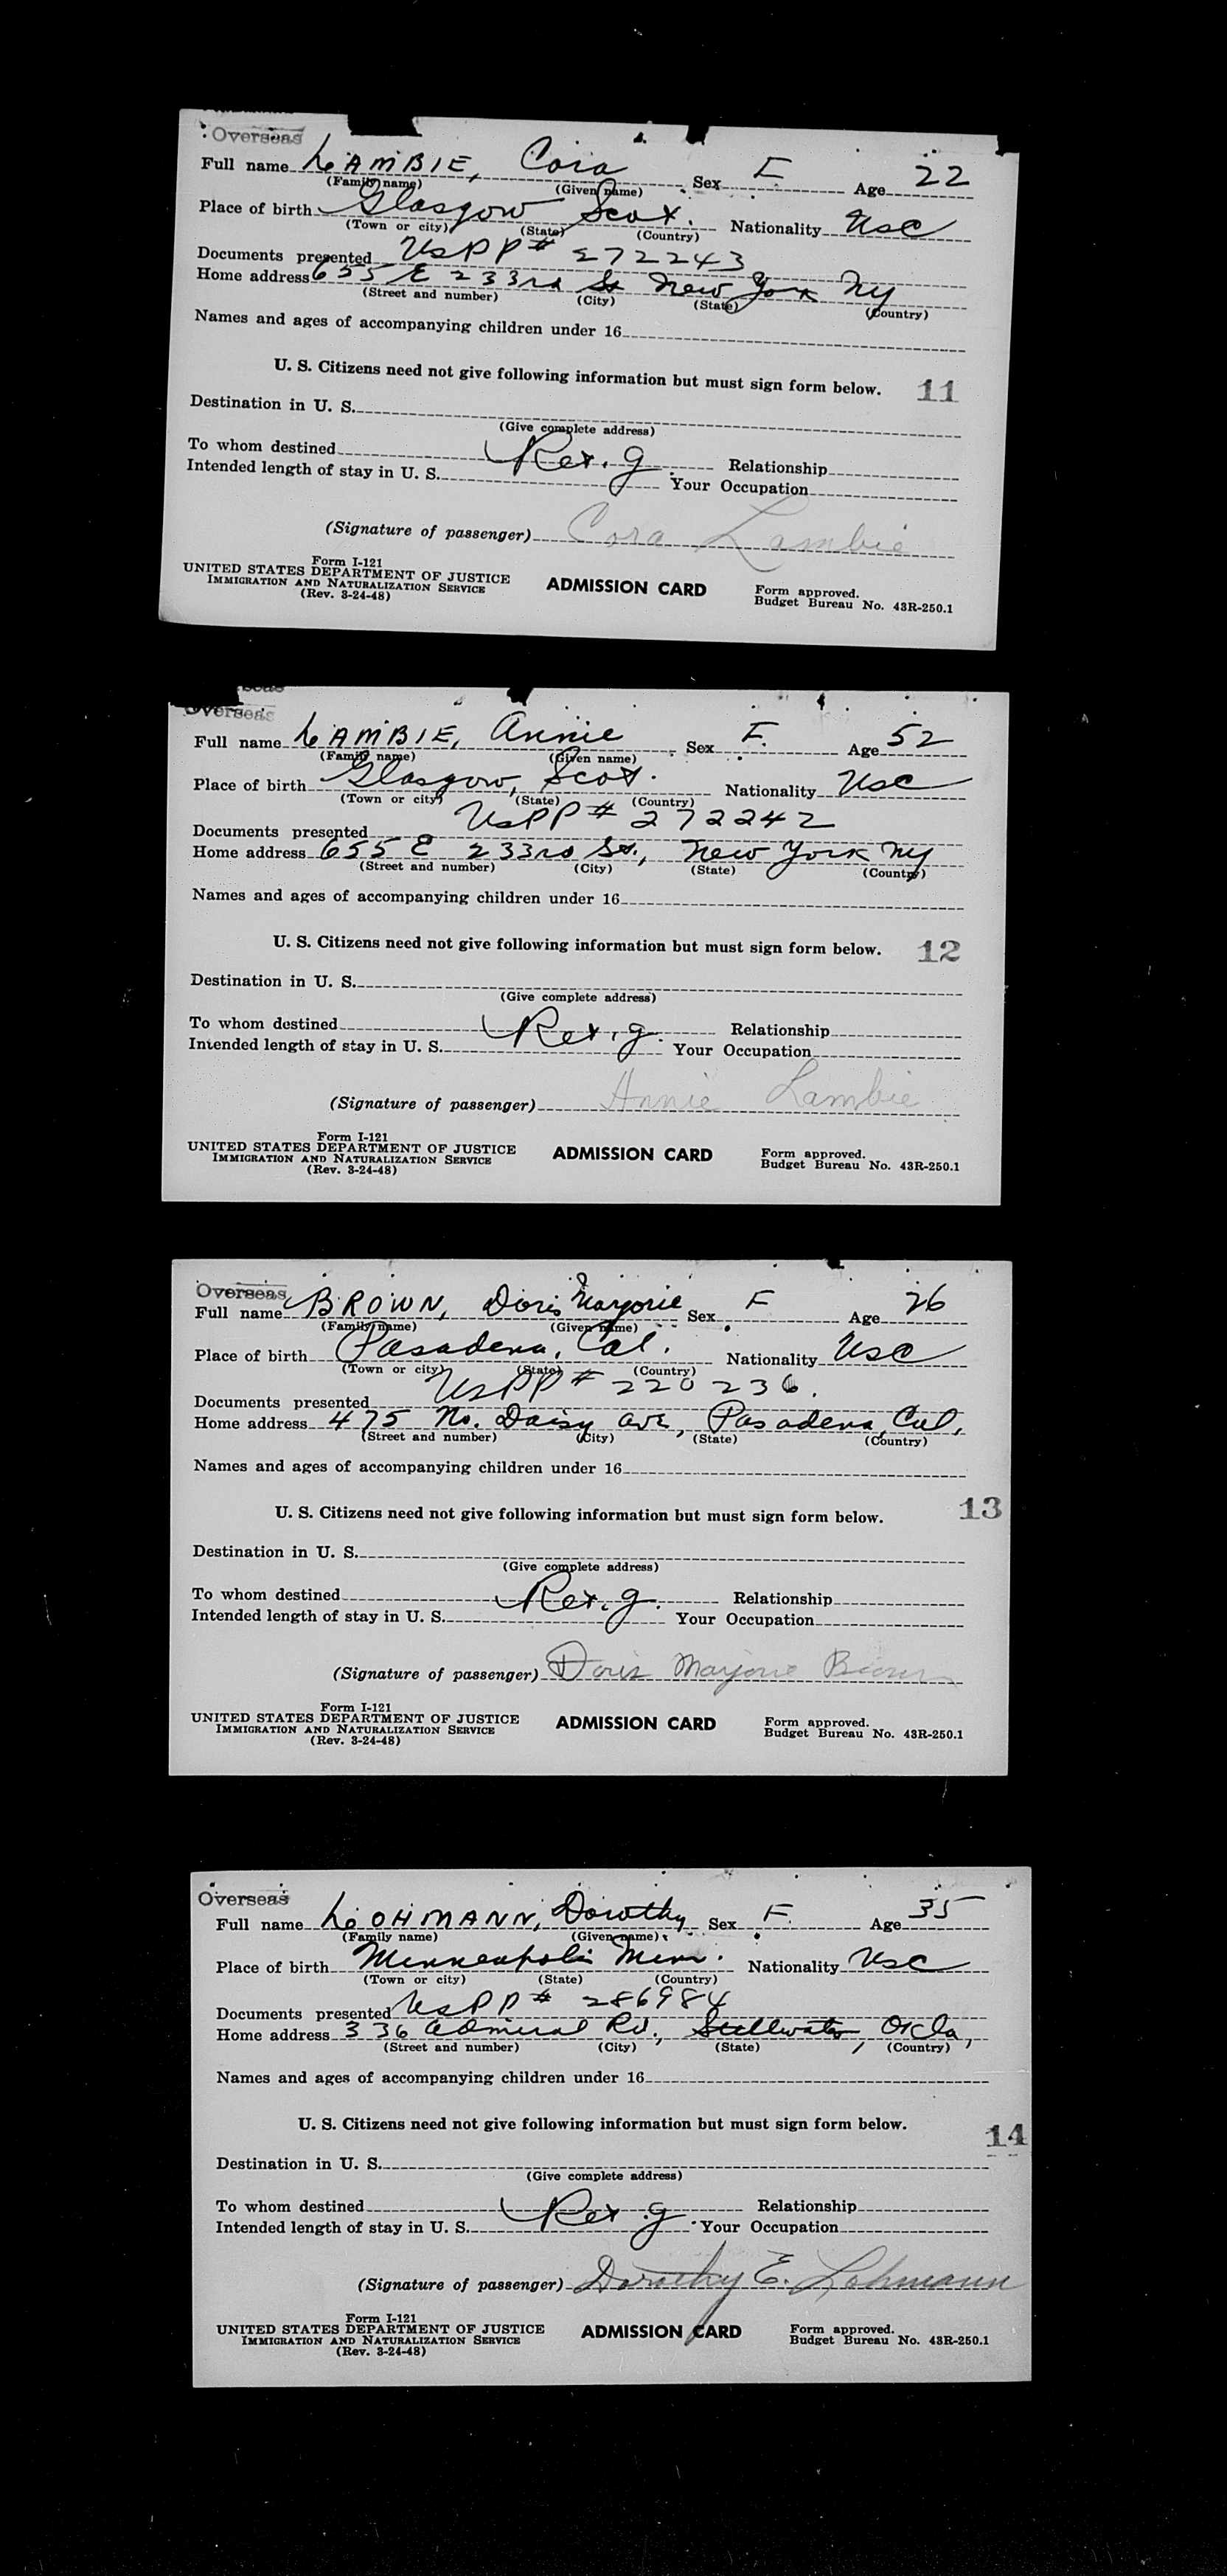 Overseas
Full name LAMBIE, Cora Sex F Age 22
(Family name) (Given name)
Place of birth Glasgow Scot. Nationality USC
(Town or city) (State) (Country)
Documents presented USPP# 272243
Home address 655 E 233rd St New York NY
(Street and number) (City) (State) (Country)
Names and ages of accompanying children under 16
U. S. Citizens need not give following information but must sign form below. 11
Destination in U. S.
(Give complete address)
To whom destined Relationship
Intended length of stay in U. S. Your Occupation
(Signature of passenger) Cora Lambie
Form I-121
UNITED STATES DEPARTMENT OF JUSTICE ADMISSION CARD Form approved.
IMMIGRATION AND NATURALIZATION SERVICE Budget Bureau No. 43R-250.1
(Rev. 3-24-48)
Overseas
Full name LAMBIE, Annie Sex F. Age 52
(Family name) (Given name)
Place of birth Glasgow, Scot. Nationality USC
(Town or city) (State) (Country)
Documents presented USPP# 272242
Home address 655 E 233rd St., New York NY
(Street and number) (City) (State) (Country)
Names and ages of accompanying children under 16
U. S. Citizens need not give following information but must sign form below. 12
Destination in U. S.
(Give complete address)
To whom destined Relationship
Intended length of stay in U. S. Your Occupation
(Signature of passenger) Annie Lambie
Form I-121
UNITED STATES DEPARTMENT OF JUSTICE ADMISSION CARD Form approved.
IMMIGRATION AND NATURALIZATION SERVICE Budget Bureau No. 43R-250.1
(Rev. 3-24-48)
Overseas
Full name BROWN, Doris Marjorie Sex F Age 26
(Family name) (Given name)
Place of birth Pasadena, Cal. Nationality USC
(Town or city) (State) (Country)
Documents presented USPP# 220236.
Home address 475 No. Daisy Ave, Pasadena, Cal,
(Street and number) (City) (State) (Country)
Names and ages of accompanying children under 16
U. S. Citizens need not give following information but must sign form below. 13
Destination in U. S.
(Give complete address)
To whom destined Relationship
Intended length of stay in U. S. Your Occupation
(Signature of passenger) Doris Marjorie Brown
Form I-121
UNITED STATES DEPARTMENT OF JUSTICE ADMISSION CARD Form approved.
IMMIGRATION AND NATURALIZATION SERVICE Budget Bureau No. 43R-250.1
(Rev. 3-24-48)
Overseas
Full name LOHMANN, Dorothy Sex F. Age 35
(Family name) (Given name)
Place of birth Minneapolis Minn. Nationality USC
(Town or city) (State) (Country)
Documents presented USPP# 286984
Home address 336 Admiral Rd., Stillwater, Okla,
(Street and number) (City) (State) (Country)
Names and ages of accompanying children under 16
U. S. Citizens need not give following information but must sign form below. 14
Destination in U. S.
(Give complete address)
To whom destined Relationship
Intended length of stay in U. S. Your Occupation
(Signature of passenger) Dorothy E. Lohmann
Form I-121
UNITED STATES DEPARTMENT OF JUSTICE ADMISSION CARD Form approved.
IMMIGRATION AND NATURALIZATION SERVICE Budget Bureau No. 43R-250.1
(Rev. 3-24-48)